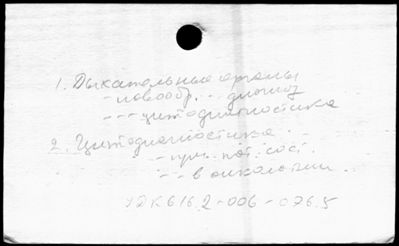 1. Дыхательные органы
- новообр. - диагноз
- - - цитодиагностика
2. Цитодиагностика
- при пат. сост.
- - в онкологии
УДК 616.2-006-076.5